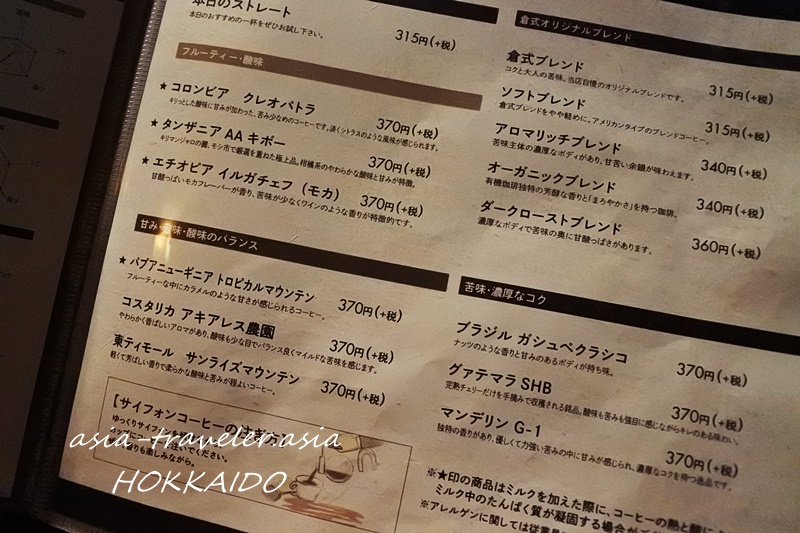 本日のストレート
本日のおすすめの一杯をぜひお試し下さい。
315円(+税)
フルーティー・酸味
★コロンビア クレオパトラ
キリッとした酸味に甘みが加わった、苦み少なめのコーヒーです。淡くシトラスのような風味が感じられます。
370円(+税)
★タンザニア AA キボー
キリマンジャロの麓、モシ市で厳選を重ねた極上品。柑橘系のやわらかな酸味と甘みが特徴。
370円(+税)
★エチオピア イルガチェフ(モカ)
甘酸っぱいモカフレーバーが香り、苦味が少なくワインのような香りが特徴的です。
370円(+税)
甘み・苦味・酸味のバランス
★パプアニューギニア トロピカルマウンテン
フルーティーな中にカラメルのような甘さが感じられるコーヒー。
370円(+税)
コスタリカ アキアレス農園
やわらかく香ばしいアロマがあり、酸味も少な目でバランス良くマイルドな苦味を感じます。
370円(+税)
東ティモール サンライズマウンテン
軽くて芳ばしい香りで柔らかな酸味と苦みが程よいコーヒー。
370円(+税)
【サイフォンコーヒーの注ぎ方
ゆっくりサイフォン
カップに
注いでください。
香りも楽しみながら。
倉式オリジナルブレンド
倉式ブレンド
コクと大人の苦味。当店自慢のオリジナルブレンドです。
315円(+税)
ソフトブレンド
倉式ブレンドをやや軽めに。アメリカンタイプのブレンドコーヒー。
315円(+税)
アロマリッチブレンド
苦味主体の濃厚なボディがあり、甘苦い余韻が味わえます。
340円(+税)
オーガニックブレンド
有機珈琲独特の芳醇な香りと「まろやかさ」を持つ珈琲。
340円(+税)
ダークローストブレンド
濃厚なボディで苦味の奥に甘酸っぱさがあります。
360円(+税)
苦味・濃厚なコク
ブラジル ガシュペクラシコ
ナッツのような香りと甘みのあるボディが持ち味。
370円(+税)
グアテマラ SHB
完熟チェリーだけを手摘みで収穫される銘品。酸味も苦みも強目に感じながらキレのある味わい。
370円(+税)
マンデリン G-1
独特の香りがあり、優しくて力強い苦みの中に甘みが感じられ、濃厚なコクを持つ逸品です。
370円(+税)
※★印の商品はミルクを加えた際に、コーヒーの熱と酸によ
ミルク中のたんぱく質が凝固する場合が
※アレルゲンに関しては従業員
asia-traveler.asia
HOKKAIDO